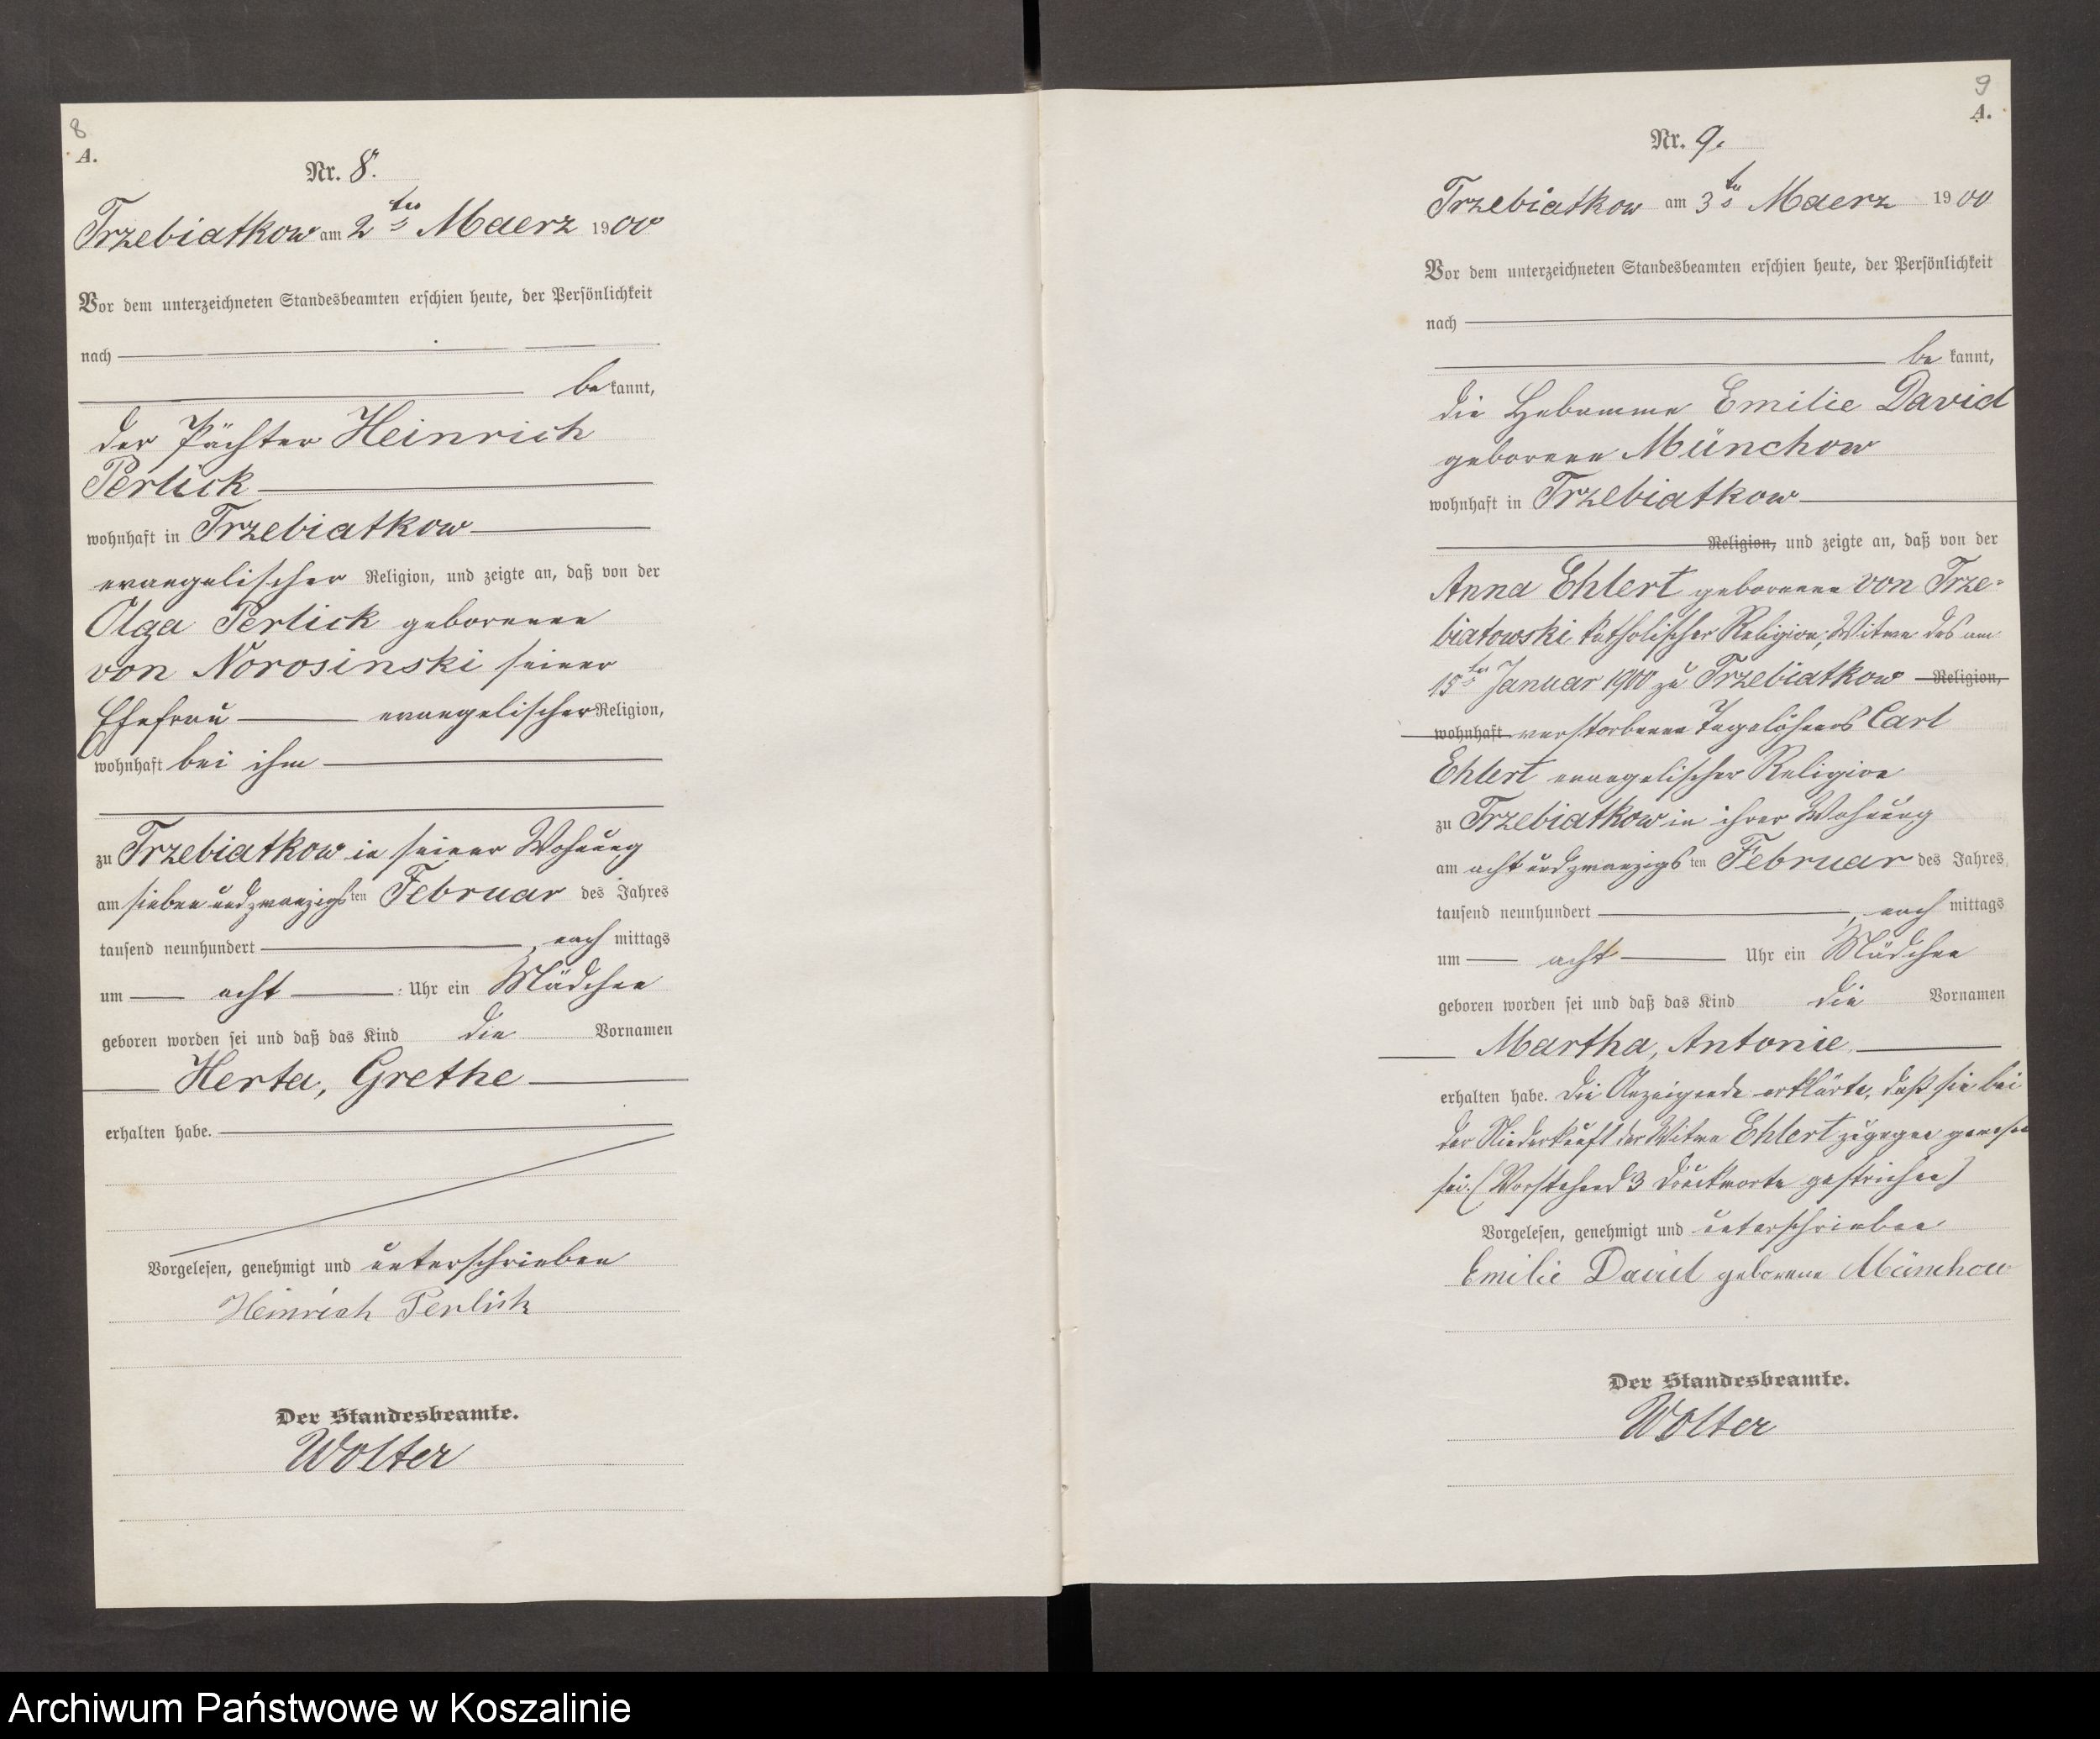 8
A.
Nr. 8.
Trzebiatkow am 2ten Maerz 1900
Vor dem unterzeichneten Standesbeamten erschien heute, der Persönlichkeit
nach
be kannt,
der Pächter Heinrich
Perlick
wohnhaft in Trzebiatkow
evangelischer Religion, und zeigte an, daß von der
Olga Perlick geborenen
von Norosinski seiner
Ehefrau evangelischer Religion,
wohnhaft bei ihm
zu Trzebiatkow in seiner Wohnung
am sieben und zwanzigsten Februar des Jahres
tausend neunhundert, nach mittags
um acht Uhr ein Mädchen
geboren worden sei und daß das Kind die Vornamen
Herta, Grethe
erhalten habe.
Vorgelesen, genehmigt und unterschrieben
Heinrich Perlick
Der Standesbeamte.
Wolter
9
A.
Nr. 9.
Trzebiatkow am 3ten Maerz 1900
Vor dem unterzeichneten Standesbeamten erschien heute, der Persönlichkeit
nach
be kannt,
die Hebamme Emilie David
geborene Münchow
wohnhaft in Trzebiatkow
Religion, und zeigte an, daß von der
Anna Ehlert geborenen von Trze-
biatowski katholischer Religion, Witwe des am
15ten Januar 1900 zu Trzebiatkow Religion,
wohnhaft verstorbenen Tagelöhners Carl
Ehlert evangelischer Religion
zu Trzebiatkow in ihrer Wohnung
am acht und zwanzigsten Februar des Jahres
tausend neunhundert, nach mittags
um acht Uhr ein Mädchen
geboren worden sei und daß das Kind die Vornamen
Martha, Antonie
erhalten habe. Die Anzeigende erklärte, daß sie bei
der Niederkunft der Witwe Ehlert zugegen gewesen
sei. (Vorstehend 3 Druckworte gestrichen)
Vorgelesen, genehmigt und unterschrieben
Emilie David geborene Münchow
Der Standesbeamte.
Wolter
Archiwum Państwowe w Koszalinie